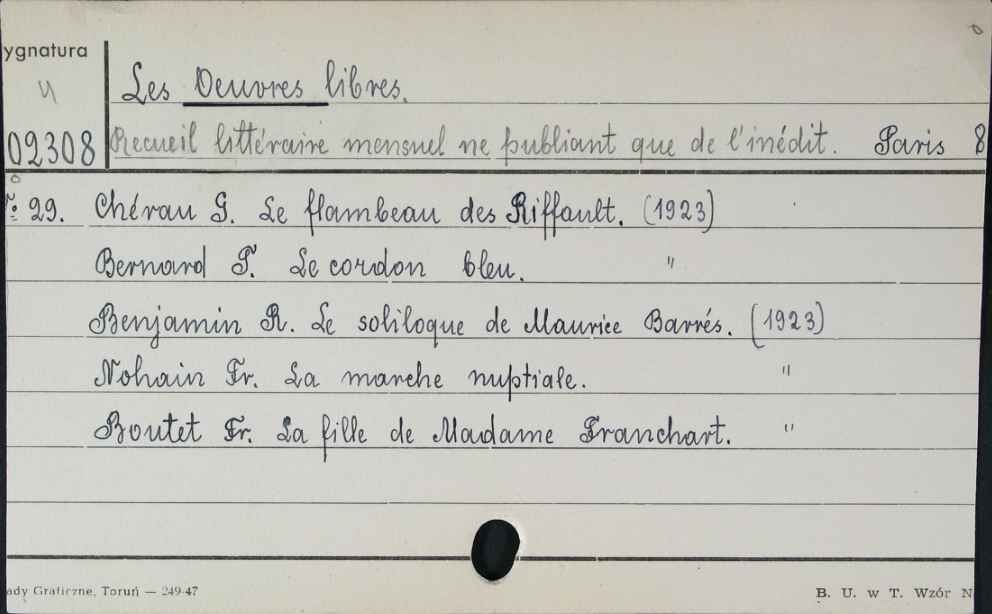 ygnatura
Les Oeuvres libres.
02308 Recueil littéraire mensuel ne publiant que de l'inédit. Paris 8
No 29. Chérau G. Le flambeau des Riffault. (1923)
Bernard T. Le cordon bleu. "
Benjamin R. Le soliloque de Maurice Barrés. (1923)
Nohain Fr. La marche nuptiale. "
Boutet Fr. La fille de Madame Franchart. "
ady Graficzne, Toruń — 249-47
B. U. w T. Wzór N